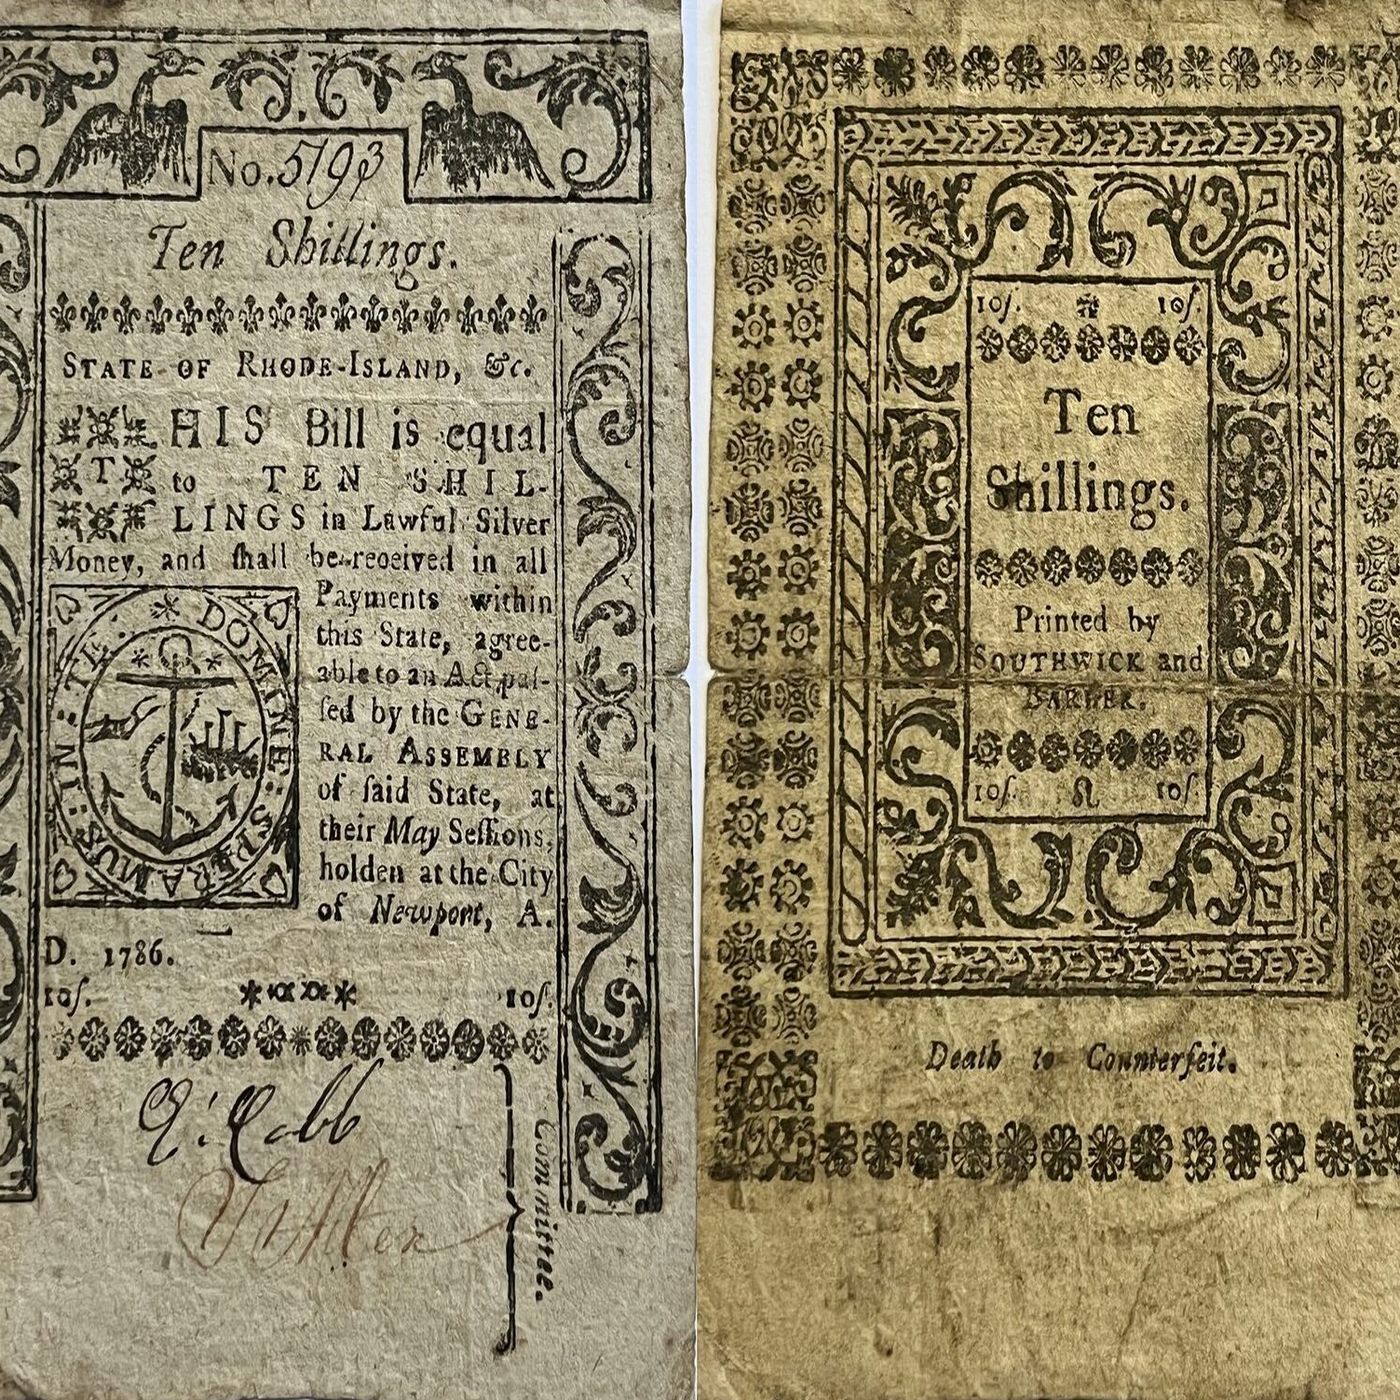 No. 5193
Ten Shillings.
STATE OF RHODE-ISLAND, &c.
THIS Bill is equal
to TEN SHIL-
LINGS in Lawful Silver
Money, and ſhall be received in all
Payments within
this State, agree-
able to an Act paſ-
ſed by the GENE-
RAL ASSEMBLY
of ſaid State, at
their May Seſſions,
holden at the City
of Newport, A.
D. 1786.
IN TE DOMINE SPERAMUS
10ſ. 10ſ.
Committee.
10ſ. 10ſ.
Ten
Shillings.
Printed by
SOUTHWICK and
BARBER.
10ſ. 10ſ.
Death to Counterfeit.